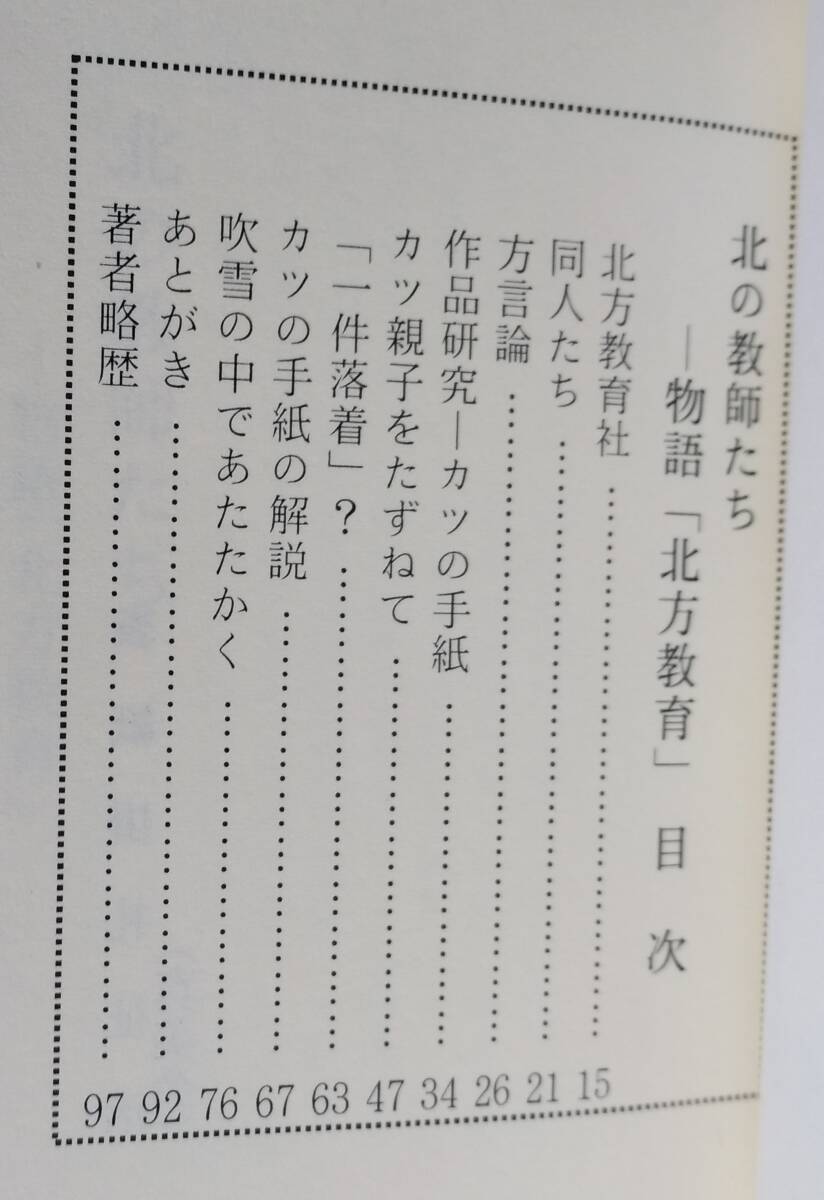 北の教師たち
―物語「北方教育」 目 次
北方教育社 …………………… 15
同人たち …………………… 21
方言論 …………………… 26
作品研究―カツの手紙 …………………… 34
カツ親子をたずねて …………………… 47
「一件落着」？ …………………… 63
カツの手紙の解説 …………………… 67
吹雪の中であたたかく …………………… 76
あとがき …………………… 92
著者略歴 …………………… 97